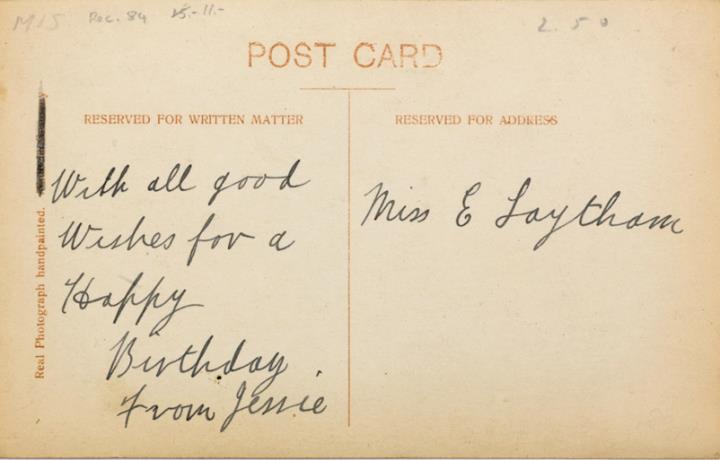 M15 Poc. 84 15.-11.-
2.50
POST CARD
RESERVED FOR WRITTEN MATTER
RESERVED FOR ADDRESS
With all good
Wishes for a
Happy
Birthday.
From Jessie
Miss E Laytham
Real Photograph handpainted.